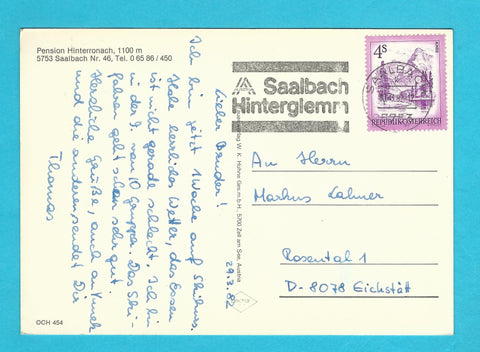 Pension Hinterronach, 1100 m
5753 Saalbach Nr. 46, Tel. 0 65 86 / 450
Saalbach
Hinterglemm
4 S
REPUBLIK ÖSTERREICH
SAALBACH
5753
29.3.82
Lieber Bruder!
Ich bin jetzt 1 Woche auf Skikurs.
Habe herrliches Wetter, das Essen
ist nicht gerade schlecht. Ich bin
in der 9. von 10 Gruppen. Das Ski-
fahren geht schon sehr gut.
Herzliche Grüße, auch an
und die anderen sendet Dir
Thomas
An Herrn
Markus Lahner
Rosental 1
D-8078 Eichstätt
W. K. Hofner Ges.m.b.H., 5700 Zell am See, Austria
OCH 454